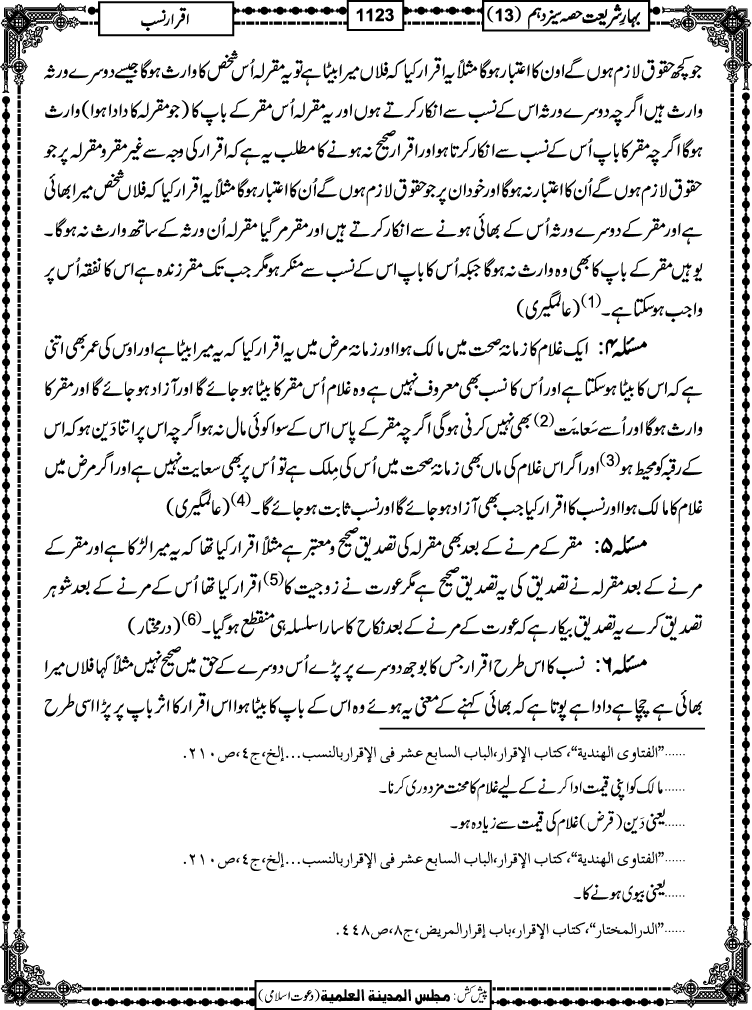 بہارِ شریعت حصہ سیزدہم (13)
1123
اقرار نسب
جو کچھ حقوق لازم ہوں گے اون کا اعتبار ہوگا مثلاً یہ اقرار کیا کہ فلاں میرا بیٹا ہے تو یہ مقرلہ اُس شخص کا وارث ہوگا جیسے دوسرے ورثہ
وارث ہیں اگرچہ دوسرے ورثہ اس کے نسب سے انکار کرتے ہوں اور یہ مقرلہ اُس مقر کے باپ کا (جو مقرلہ کا دادا ہوا) وارث
ہوگا اگرچہ مقر کا باپ اُس کے نسب سے انکار کرتا ہو اور اقرار صحیح نہ ہونے کا مطلب یہ ہے کہ اقرار کی وجہ سے غیر مقر و مقرلہ پر جو
حقوق لازم ہوں گے اُن کا اعتبار نہ ہوگا اور خود ان پر جو حقوق لازم ہوں گے اُن کا اعتبار ہوگا مثلاً یہ اقرار کیا کہ فلاں شخص میرا بھائی
ہے اور مقر کے دوسرے ورثہ اُس کے بھائی ہونے سے انکار کرتے ہیں اور مقر مر گیا مقرلہ اُن ورثہ کے ساتھ وارث نہ ہوگا۔
یوہیں مقر کے باپ کا بھی وہ وارث نہ ہوگا جبکہ اُس کا باپ اس کے نسب سے منکر ہو مگر جب تک مقر زندہ ہے اس کا نفقہ اُس پر
واجب ہوسکتا ہے۔(1) (عالمگیری)
مسئلہ ۴: ایک غلام کا زمانۂ صحت میں مالک ہوا اور زمانۂ مرض میں یہ اقرار کیا کہ یہ میرا بیٹا ہے اور اوس کی عمر بھی اتنی
ہے کہ اس کا بیٹا ہوسکتا ہے اور اُس کا نسب بھی معروف نہیں ہے وہ غلام اُس مقر کا بیٹا ہو جائے گا اور آزاد ہو جائے گا اور مقر کا
وارث ہوگا اور اُسے سَعایَت(2) بھی نہیں کرنی ہوگی اگرچہ مقر کے پاس اس کے سوا کوئی مال نہ ہو اگرچہ اس پر اتنا دَین ہو کہ اس
کے رقبہ کو محیط ہو(3) اور اگر اس غلام کی ماں بھی زمانۂ صحت میں اُس کی مِلک ہے تو اُس پر بھی سعایت نہیں ہے اور اگر مرض میں
غلام کا مالک ہوا اور نسب کا اقرار کیا جب بھی آزاد ہو جائے گا اور نسب ثابت ہو جائے گا۔(4) (عالمگیری)
مسئلہ ۵: مقر کے مرنے کے بعد بھی مقرلہ کی تصدیق صحیح و معتبر ہے مثلاً اقرار کیا تھا کہ یہ میرا لڑکا ہے اور مقر کے
مرنے کے بعد مقرلہ نے تصدیق کی یہ تصدیق صحیح ہے مگر عورت نے زوجیت کا(5) اقرار کیا تھا اُس کے مرنے کے بعد شوہر
تصدیق کرے یہ تصدیق بیکار ہے کہ عورت کے مرنے کے بعد نکاح کا سارا سلسلہ ہی منقطع ہوگیا۔(6) (درمختار)
مسئلہ ۶: نسب کا اس طرح اقرار جس کا بوجھ دوسرے پر پڑے اُس دوسرے کے حق میں صحیح نہیں مثلاً کہا فلاں میرا
بھائی ہے چچا ہے دادا ہے پوتا ہے کہ بھائی کہنے کے معنی یہ ہوئے وہ اس کے باپ کا بیٹا ہوا اس اقرار کا اثر باپ پر پڑا اسی طرح
......”الفتاوى الهندية“،كتاب الإقرار،الباب السابع عشر فى الإقرار بالنسب...إلخ،ج٤،ص٢١٠.
......مالک کو اپنی قیمت ادا کرنے کے لیے غلام کا محنت مزدوری کرنا۔
......یعنی دَین (قرض) غلام کی قیمت سے زیادہ ہو۔
......”الفتاوى الهندية“،كتاب الإقرار،الباب السابع عشر فى الإقرار بالنسب...إلخ،ج٤،ص٢١٠.
......یعنی بیوی ہونے کا۔
......”الدرالمختار“،كتاب الإقرار،باب إقرار المريض،ج٨،ص٤٤٨.
پیش کش: مجلس المدینة العلمیة (دعوت اسلامی)